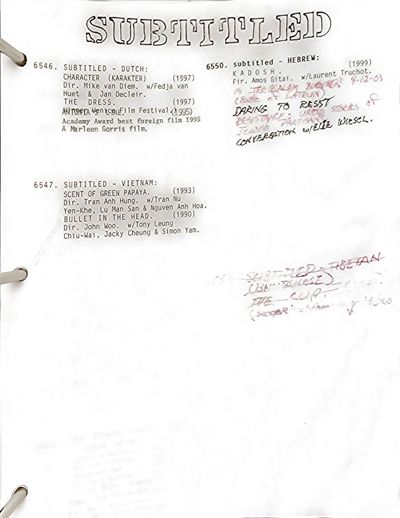 SUBTITLED
6546. SUBTITLED - DUTCH:
CHARACTER (KARAKTER) (1997)
Dir. Mike van Diem. w/Fedja van
Huet & Jan Decleir.
THE DRESS. (1997)
Film Festival.
ANTONIA'S LINE. (1995)
Academy Award best foreign film 1995
A Marleen Gorris film.
6547. SUBTITLED - VIETNAM:
SCENT OF GREEN PAPAYA. (1993)
Dir. Tran Anh Hung. w/Tran Nu
Yen-Khe, Lu Man San & Nguyen Anh Hoa.
BULLET IN THE HEAD. (1990)
Dir. John Woo. w/Tony Leung
Chiu-Wai, Jacky Cheung & Simon Yam.
6550. subtitled - HEBREW:
KADOSH. (1999)
Fir. Amos Gitai. w/Laurent Truchot.
JERUSALEM 4-12-03
(BATTLE OF LATRUN)
DARING TO RESIST
STORIES OF
RESISTANCE
JEWISH PARTISANS
CONVERSATION w/ELIE WIESEL.
SUBTITLED - TIBETAN
THE CUP.